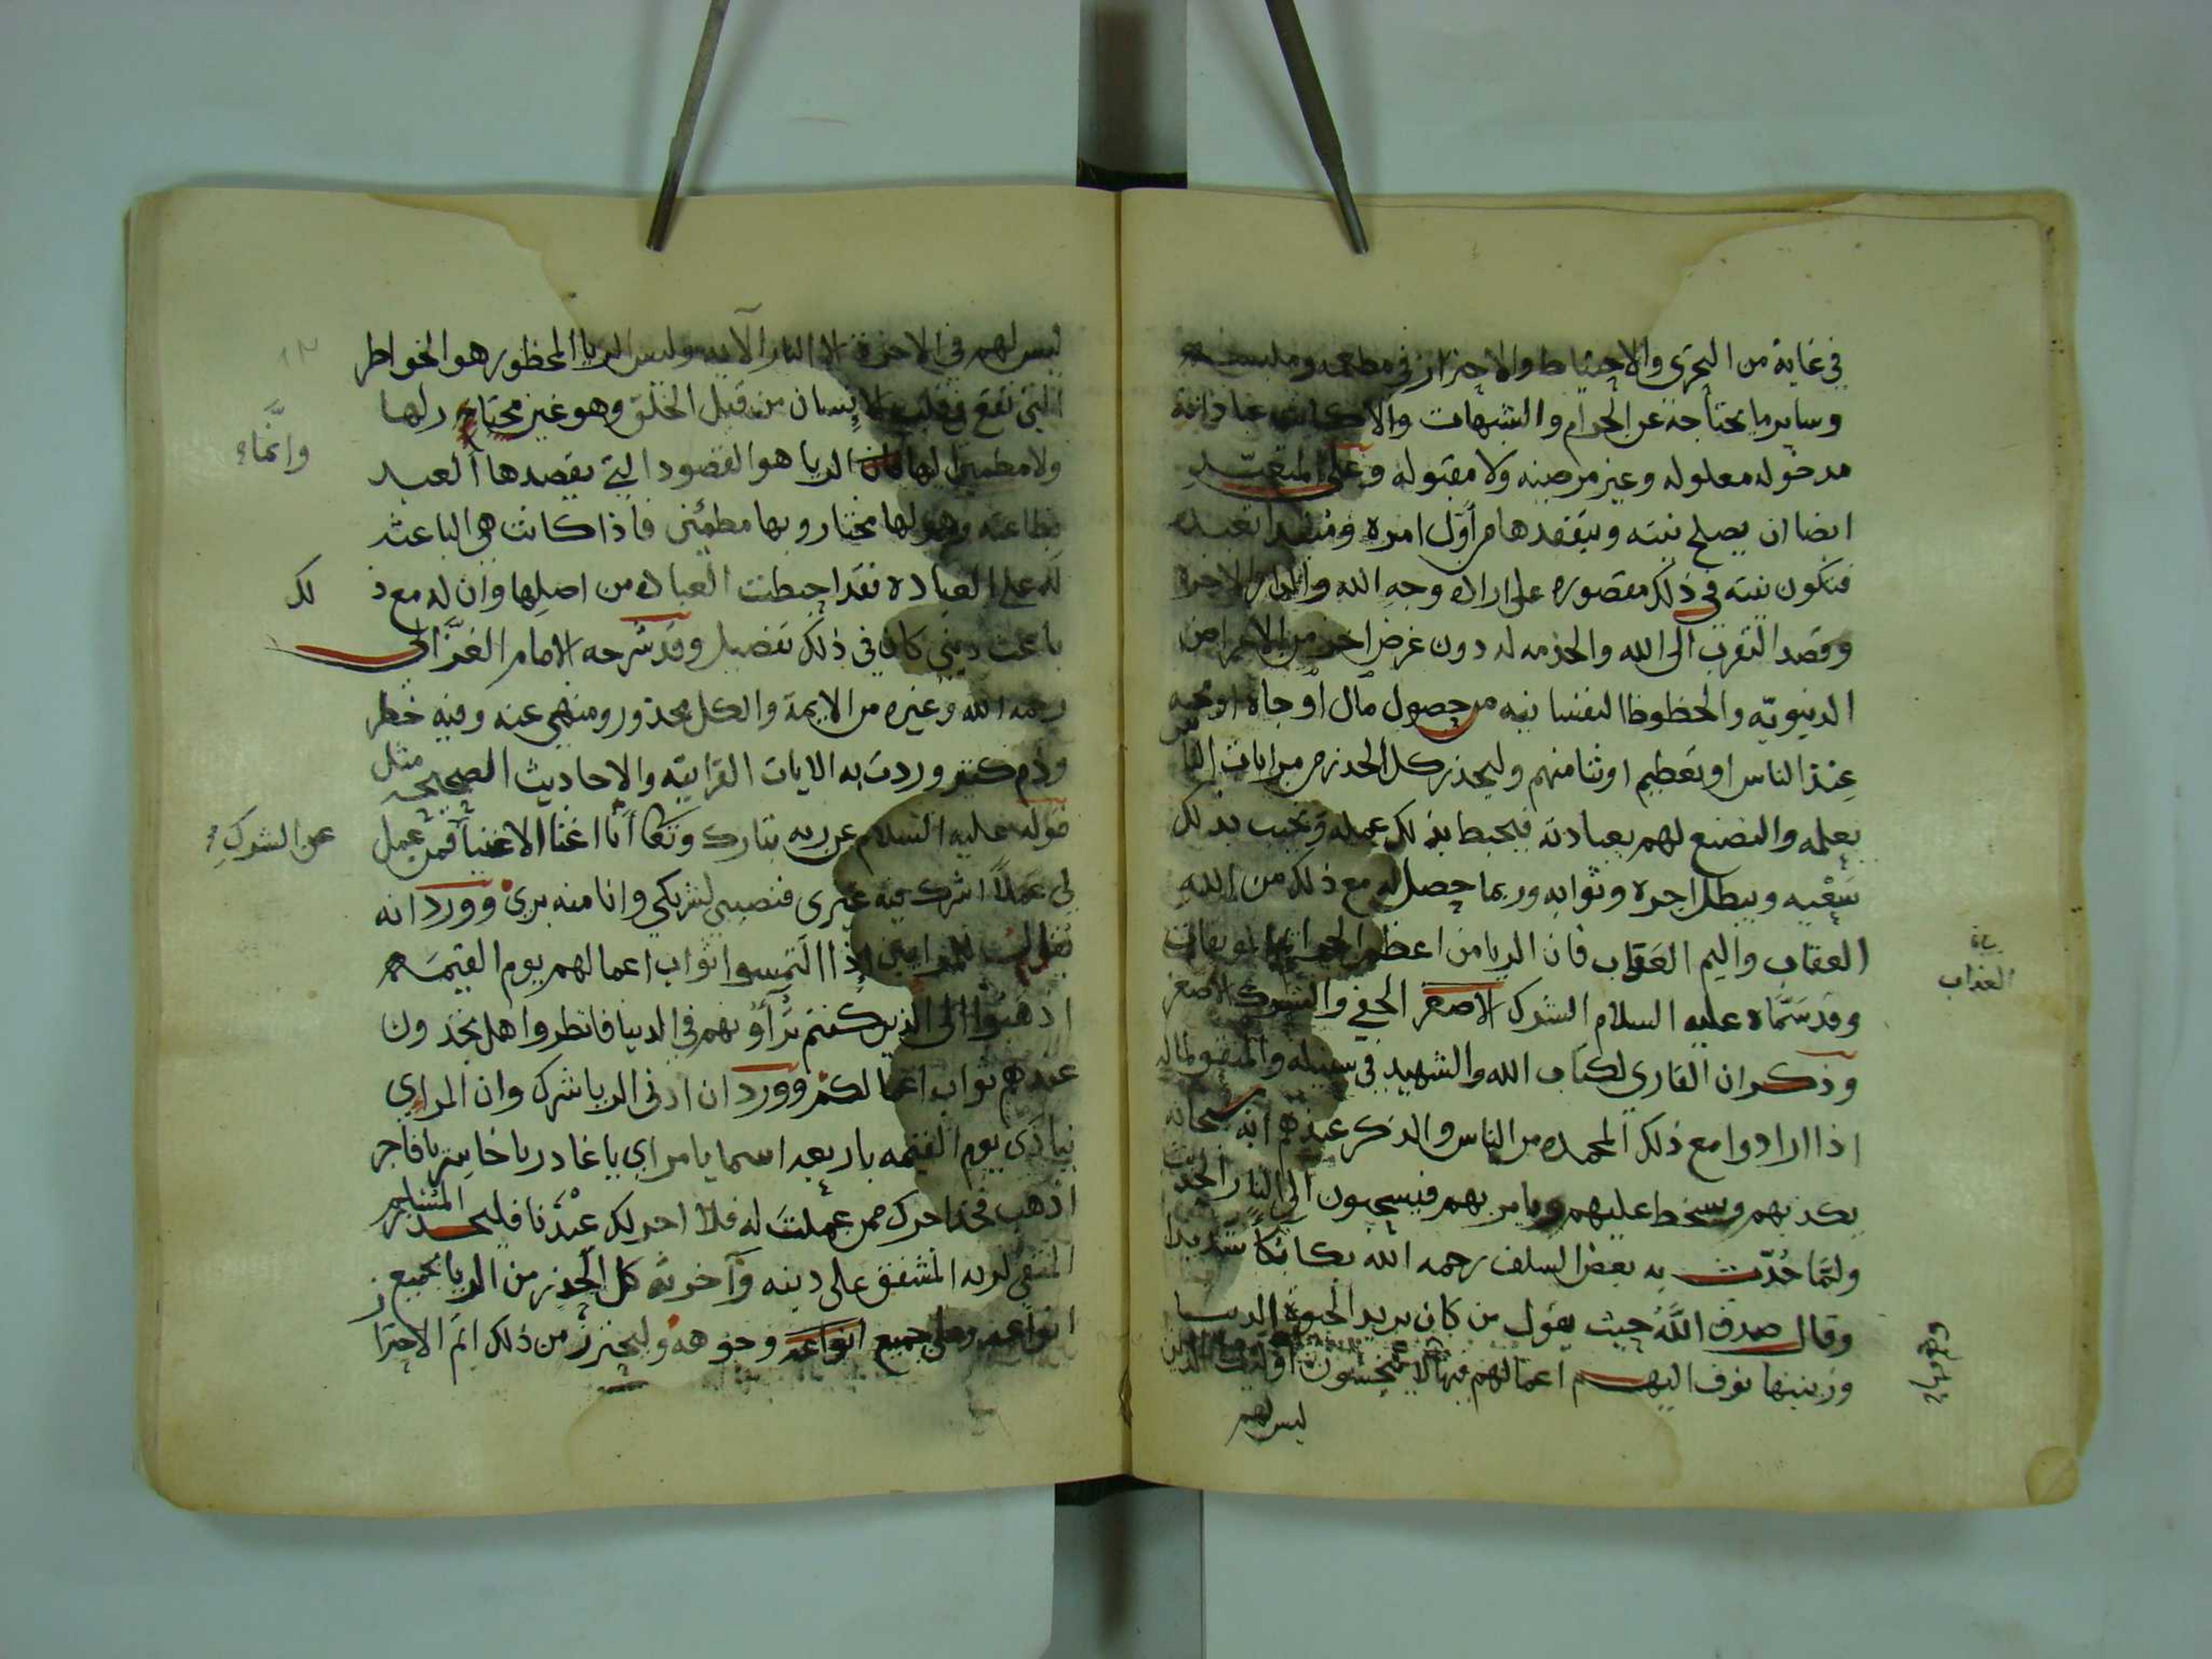 في غاية من التحرى والاحتياط والاحتراز في مطعمه وملبسه
وساير ما يحتاجه عن الحرام والشبهات والا كانت عباداته
مدخوله معلوله وغير مرضيه ولا مقبوله وعلى المتعبد
ايضا ان يصلح نيته ويتفقدها من اول امره ومبتدا تعبده
فتكون نيته في ذلك مقصوره على اراده وجه الله والدار الاخرة
وقصد التقرب الى الله والخدمه له دون غرض اخر من الاغراض
الدنيويّه والحظوظ النفسانيه من حصول مال او جاه او
عند الناس او تعظيم او ثنا منهم وليحذر كل الحذر من مرايات الناس
بعلمه والتصنع لهم بعبادته فيحبط بذلك عمله ويخيب بذلك
سَعْيه ويبطل اجره وثوابه وربما حصل له مع ذلك من الله
العقاب واليم العقاب فان الريا من اعظم
العذاب
وقد سَمَّاه عليه السلام الشرك الاصغر الخفي والشرك الاصغر
وذكر ان القاري لكتاب الله والشهيد في سبيله والمنفق لماله
اذا ارادوا مع ذلك المحمده من الناس والذكر عندهم انه سبحانه
يكذبهم ويسخط عليهم ويامر بهم فيسحبون الى النار الحديث
ولمّا حُدّث به بعض السلف رحمه الله بكا بكاً شديدا
وقال صدق اللَّه حيث يقول من كان يريد الحيوة الدنيا
وزينتها نوف اليهم اعمالهم فيها لا يبخسون اولئك الذين
ليس لهم
ليس لهم في الاخرة الا النار الآيه وليس الريا المحظور هو الخواطر
التي تقع في قلب الانسان من قبل الخلق وهو غير مختار لها
وانَّما
ولا مطمين لها الريا هو القصود التي يقصدها العبد
بطاعته وهو لها مختار وبها مطمئن فاذا كانت هي الباعثه
له على العباده فقد احبطت العباده من اصلها وان له مع ذ
لك
باعث ديني كان في ذلك تفصيل وقد شرحه الامام الغزّالي
رحمه الله وغيره من الايمة والكل محذور ومنهي عنه وفيه خطر
وذم كثير وردت به الايات القرانيه والاحاديث الصحيحه مثل
قوله عليه السلام عن ربه تبارك وتعا انا اغنا الاغنيا فمن عمل
عن الشرك
لي عملاً اشرك فيه غيري فنصيبي لشريكي وانا منه بري وورد انه
يقال للمرايين اذا التمسوا ثواب اعمالهم يوم القيمه
اذهبوا الى الذين كنتم تراؤنهم في الدنيا فانظروا هل تجدون
عندهم ثواب اعمالكم وورد ان ادنى الريا شرك وان المراي
ينادى يوم القيمه باربعه اسما يا مراي يا غادر يا خاسر يا فاجر
اذهب فخذ اجرك ممن عملت له فلا اجر لك عندنا فليحذر المسلم
المتقي لربه المشفق على دينه وآخرته كل الحذر من الريا بجميع
انواعه وعلى جميع انواعه وجوهه وليحترز من ذلك اتم الاحترا
ز